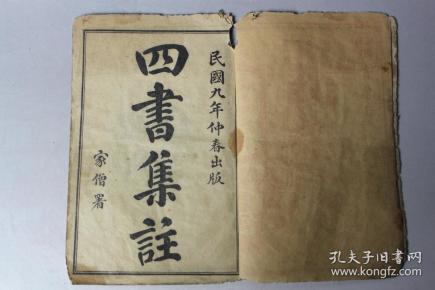 民國九年仲春出版
四書集註
家僧署
孔夫子旧书网
www.kongfz.com